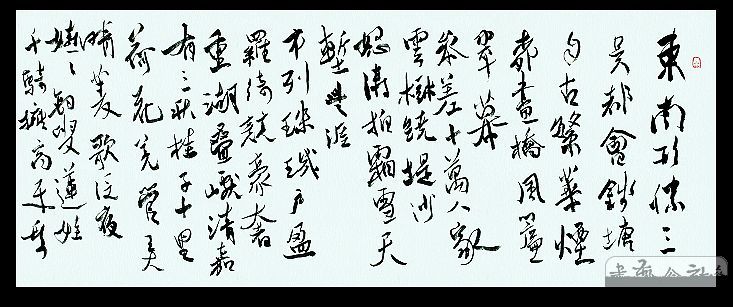 東南形勝三
吳都會錢塘
自古繁華煙
柳畫橋風簾
翠幕
參差十萬人家
雲樹繞堤沙
怒濤霜雪天
塹無涯
市列珠璣戶盈
羅綺競豪奢
重湖疊巘清嘉
有三秋桂子十里
荷花羌管弄
晴菱歌泛夜
嬉〻釣叟蓮娃
千騎擁高牙乘